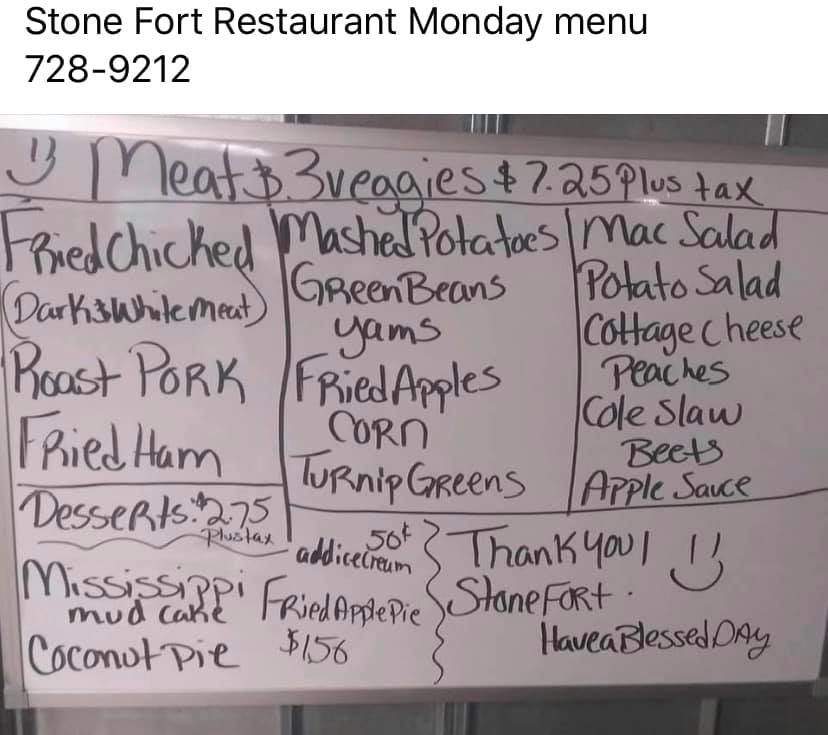 Stone Fort Restaurant Monday menu
728-9212
Meat & 3 veggies $7.25 Plus tax
Fried Chicked
(Dark & White meat)
Roast Pork
Fried Ham
Mashed Potatoes
Green Beans
yams
Fried Apples
Corn
Turnip Greens
Mac Salad
Potato Salad
Cottage Cheese
Peaches
Cole Slaw
Beets
Apple Sauce
Desserts: $2.75
Plus tax
50¢
add ice cream
Mississippi
mud cake
Coconut pie
Fried Apple Pie
$1.50
Thank you!
Stone Fort.
Have a Blessed Day